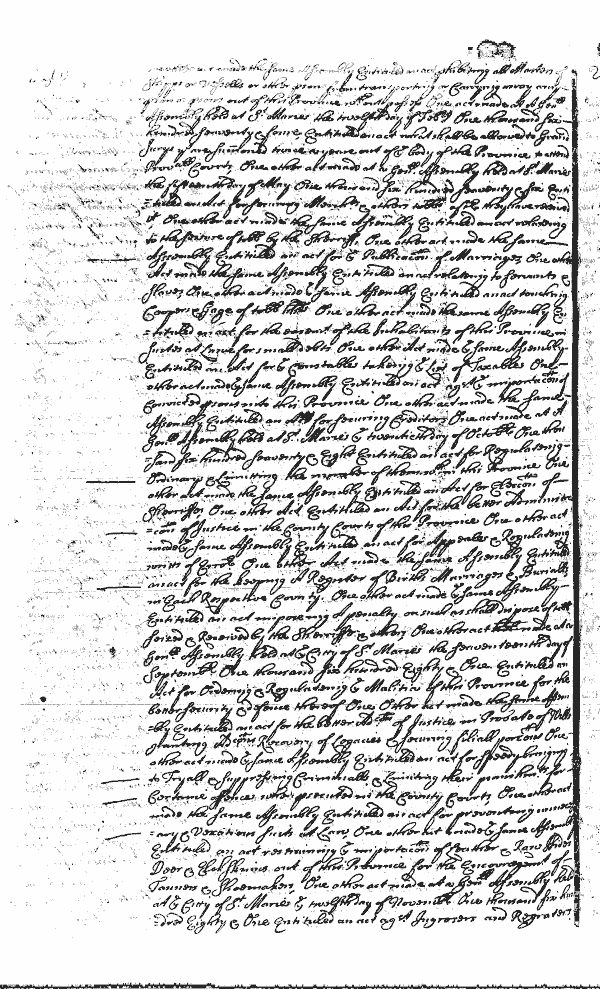 made the Same Assembly Entituled an act phibiting all Masters of
Shipps or Vessells or other pson from transporting or Carrying away any
pson or psons out of this Province without passes One act made at a Genll
Assembly held at St. Maries the twelfth day of One thousand six
hundred seaventy & fower, Entituled an act what shall be allowed to Grand
Jurys yt are sumoned twice a yeare out of ye body of the Province to attend
Provall Court, One other act made at a Genll. Assembly held at St. Maries
the fifteenth day of May One thousand six hundred Seaventy & Six Enti
=tuled an Act for others tobb. they have received
it One other act made the same Assembly Entituled an act relateing
to the seizure of tobb. by the Sherriffe. One other act made the same
Assembly Entituled an act for ye Publicacon of Marriages One other
Act made the Same Assembly Entituled an act relateing to Servants &
Slaves One other act made ye Same Assembly Entituled an act touching
Coopers & Gage of tobb hhds. One other act made the same Assembly En
=tituled an act for the ease of the Inhabitants of this Province in
Suites at Law for small debts One other Act made ye Same Assembly
Entituled an Act for ye Constables takeing ye List of Taxables One
other act made ye Same Assembly Entituled an act agst ye importacon of
Convicted psons into this Province One other act made the Same
Assembly Entituled an Act for securing Creditors One act made at A
Genll Assembly held at St. Maries ye twentieth day of Octobr. One thou
=sand six hundred Seaventy & Eight Entituled an act for Regulateing
Ordinary & limitting the number of them in this Province One
other act made the Same Assembly Entituled an Act for Eleccon of
Sherriffes One other Act Entituled an Act for the better Administra
=con of Justice in the County Courts of this Province One other act
made ye Same Assembly Entituled an act for Appeales & Regulateing
writts of Error One other Act made the same Assembly Entituled
an act for the keeping A Register of Births Marriages & Burialls
in Each Respective County. One other act made ye Same Assembly
Entituled an act imposeing A penalty on such as shall dispose of tobb
seized & Received by the Sherriffe & others One other act made at a
Genll Assembly held at ye Citty of St. Maries the seaventeenth day of
Septembr. One thousand six hundred Eighty & One Entituled an
Act for Ordering & Regulateing ye Malitia of this Province for the
better security & defence thereof One Other act made the same Assem
=bly Entituled an act for the better of Justice in Probate of Wills
granting Recovery of Legacies & secureing filiall porcons One
other act made ye Same Assembly Entituled an act for speedy bringing
to Tryall & Suppressing Criminalls & Limiting their punishmts for
Certaine offences when psecuted in the County Courts One other act
made the Same Assembly Entituled an act for preventing unnecess
=ary & Vexatious Suits at Law One other act made ye Same Assembly
Entituled an act restraining ye exportacon of Leather & Raw Hides
Deer & Elk Skinns out of this Province for the Encouragemt of
Tanners & Shoemakers. One other act made at a Genll Assembly held
at ye Citty of St. Maries ye twelfth day of Novembr. One thousand six hun
=dred Eighty & One Entituled an act agst Ingrosers and Regraters